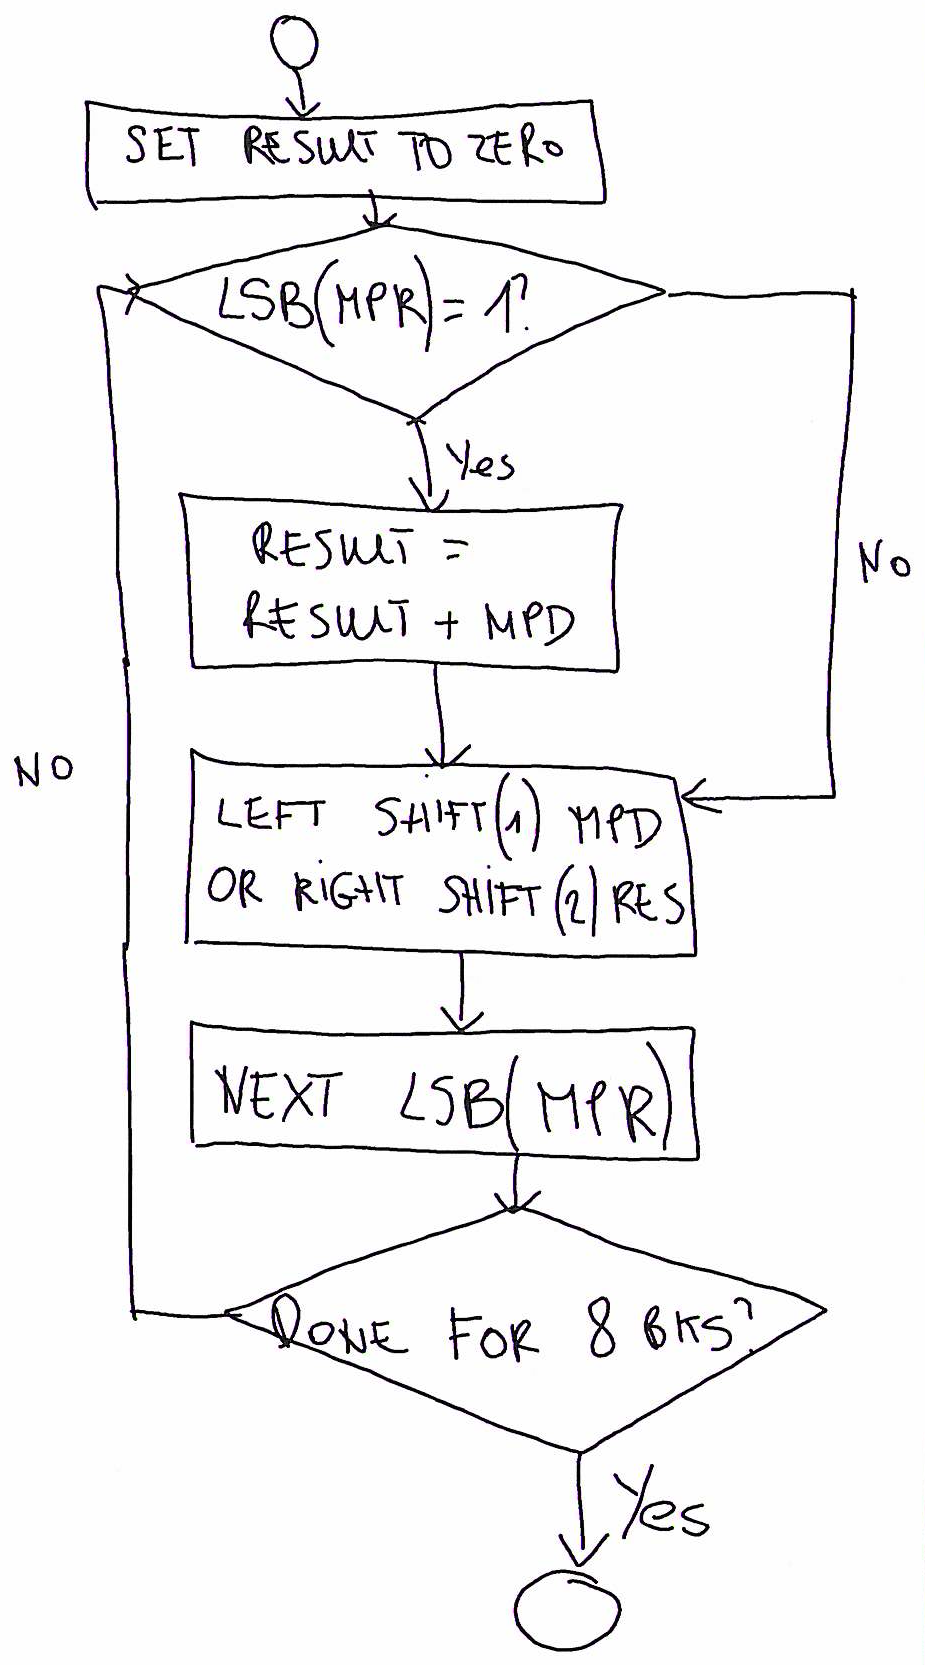 SET RESULT TO ZERO
LSB(MPR)=1?
Yes
RESULT =
RESULT + MPD
NO
NO
LEFT SHIFT(1) MPD
OR RIGHT SHIFT(2) RES
NEXT LSB(MPR)
DONE FOR 8 BKS?
Yes